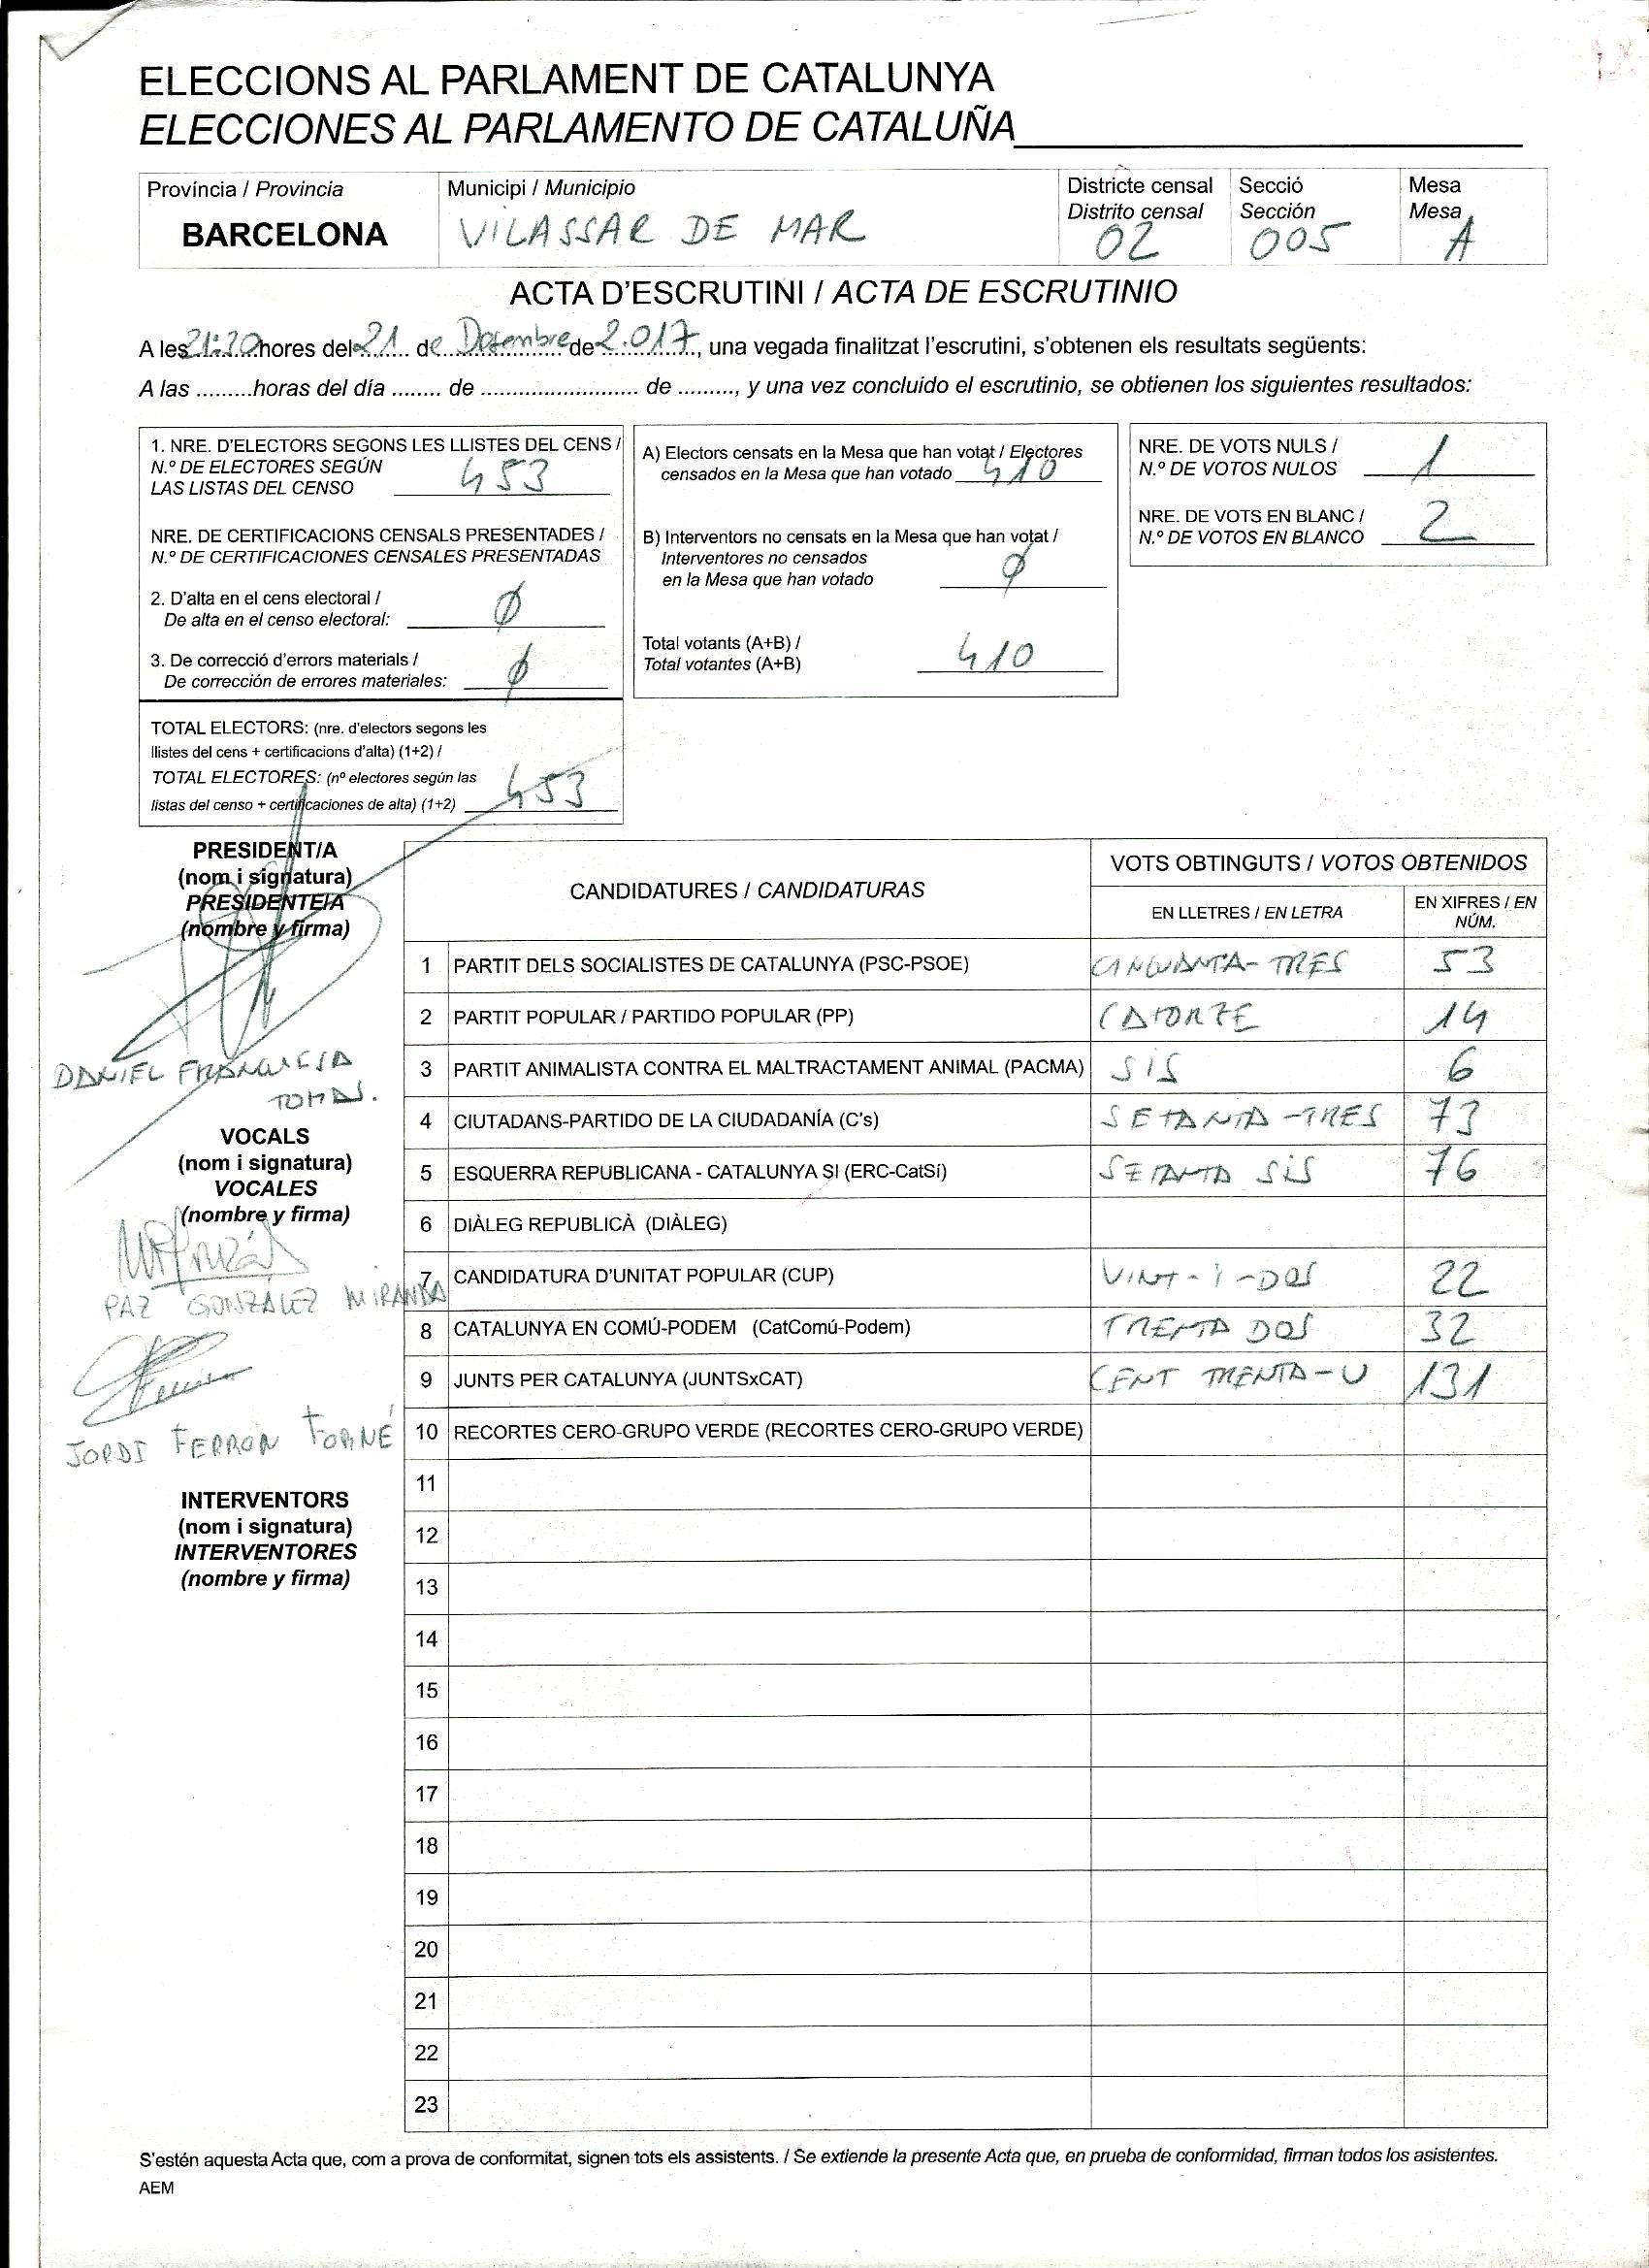 ELECCIONS AL PARLAMENT DE CATALUNYA
ELECCIONES AL PARLAMENTO DE CATALUÑA
Província / Provincia
BARCELONA
Municipi / Municipio
VILASSAR DE MAR
Districte censal
Distrito censal
02
Secció
Sección
005
Mesa
Mesa
A
ACTA D'ESCRUTINI / ACTA DE ESCRUTINIO
A les 21:20 hores del 21 de Desembre de 2.017, una vegada finalitzat l'escrutini, s'obtenen els resultats següents:
A las .........horas del día ........ de .......................... de ........., y una vez concluido el escrutinio, se obtienen los siguientes resultados:
1. NRE. D'ELECTORS SEGONS LES LLISTES DEL CENS /
N.º DE ELECTORES SEGÚN
LAS LISTAS DEL CENSO 453
NRE. DE CERTIFICACIONS CENSALS PRESENTADES /
N.º DE CERTIFICACIONES CENSALES PRESENTADAS
2. D'alta en el cens electoral /
De alta en el censo electoral: Ø
3. De correcció d'errors materials /
De corrección de errores materiales: Ø
TOTAL ELECTORS: (nre. d'electors segons les
llistes del cens + certificacions d'alta) (1+2) /
TOTAL ELECTORES: (nº electores según las
listas del censo + certificaciones de alta) (1+2) 453
A) Electors censats en la Mesa que han votat / Electores
censados en la Mesa que han votado 410
B) Interventors no censats en la Mesa que han votat /
Interventores no censados
en la Mesa que han votado Ø
Total votants (A+B) /
Total votantes (A+B) 410
NRE. DE VOTS NULS /
N.º DE VOTOS NULOS 1
NRE. DE VOTS EN BLANC /
N.º DE VOTOS EN BLANCO 2
PRESIDENT/A
(nom i signatura)
PRESIDENTE/A
(nombre y firma)
DANIEL FRANQUESA
TOMAS.
VOCALS
(nom i signatura)
VOCALES
(nombre y firma)
PAZ GONZÁLEZ MIRANDA
JORDI FERRON TORNÉ
INTERVENTORS
(nom i signatura)
INTERVENTORES
(nombre y firma)
CANDIDATURES / CANDIDATURAS
VOTS OBTINGUTS / VOTOS OBTENIDOS
EN LLETRES / EN LETRA
EN XIFRES / EN
NÚM.
1 PARTIT DELS SOCIALISTES DE CATALUNYA (PSC-PSOE) CINQUANTA-TRES 53
2 PARTIT POPULAR / PARTIDO POPULAR (PP) CATORZE 14
3 PARTIT ANIMALISTA CONTRA EL MALTRACTAMENT ANIMAL (PACMA) SIS 6
4 CIUTADANS-PARTIDO DE LA CIUDADANÍA (C's) SETANTA-TRES 73
5 ESQUERRA REPUBLICANA - CATALUNYA SI (ERC-CatSí) SETANTA SIS 76
6 DIÀLEG REPUBLICÀ (DIÀLEG)
7 CANDIDATURA D'UNITAT POPULAR (CUP) VINT-I-DOS 22
8 CATALUNYA EN COMÚ-PODEM (CatComú-Podem) TRENTA DOS 32
9 JUNTS PER CATALUNYA (JUNTSxCAT) CENT TRENTA-U 131
10 RECORTES CERO-GRUPO VERDE (RECORTES CERO-GRUPO VERDE)
11
12
13
14
15
16
17
18
19
20
21
22
23
S'estén aquesta Acta que, com a prova de conformitat, signen tots els assistents. / Se extiende la presente Acta que, en prueba de conformidad, firman todos los asistentes.
AEM